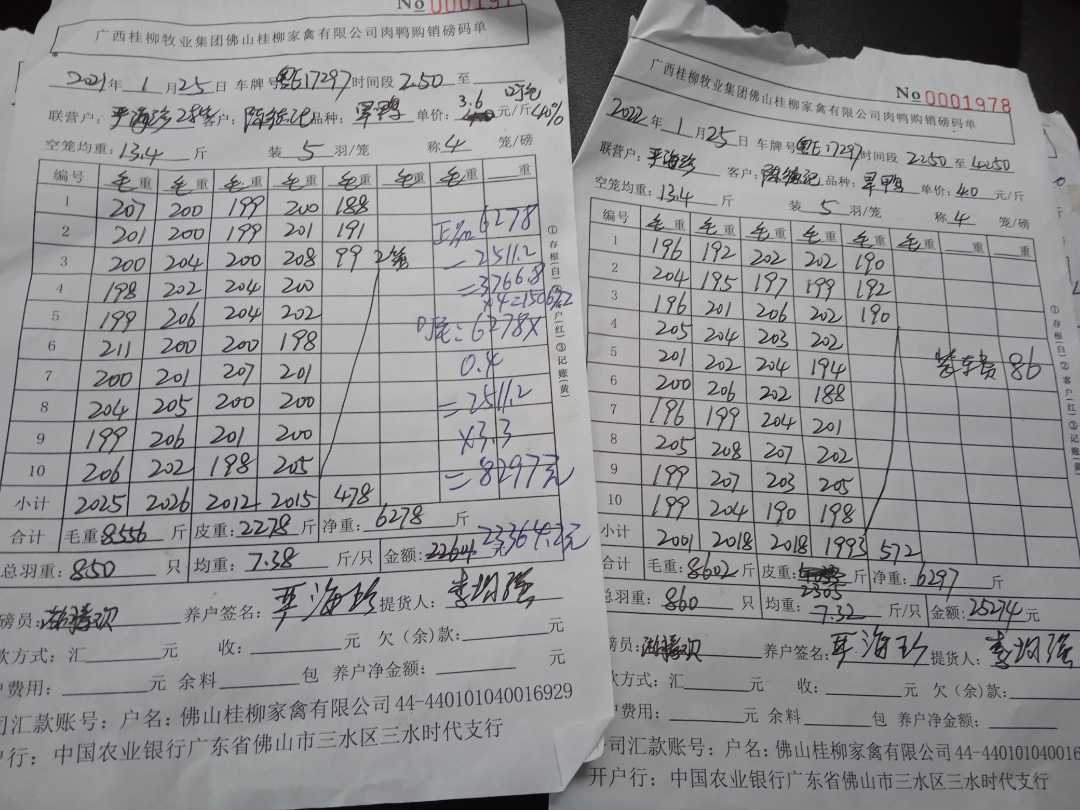 No 000197
广西桂柳牧业集团佛山桂柳家禽有限公司肉鸭购销磅码单
2021年 1 月 25 日 车牌号 粤E17297 时间段 2:50 至
联营户: 客户: 陈德记 品种: 单价: 3.6 元/斤 40%
空笼均重: 13.4 斤 装 5 羽/笼 称 4 笼/磅
编号 毛重 毛重 毛重 毛重 毛重 毛重 毛重 重
1 207 200 199 200 188
2 201 200 199 201 191 6278
3 200 204 200 208 99 2笼 -2511.2
4 198 202 204 200 =3766.8
5 199 206 204 202 ×4=15067.2
6 211 200 200 198 6278×
7 200 201 207 201 0.4
8 204 205 200 200 =2511.2
9 199 206 201 200 ×3.3
10 206 202 198 205 =8297元
小计 2025 2026 2012 2015 478
合计 毛重: 8556 斤 皮重: 2278 斤 净重: 6278 斤
总羽重: 850 只 均重: 7.38 斤/只 金额: 23364.2元
磅员: 养户签名: 覃海珍 提货人: 李均强
款方式: 汇 元 收: 元 欠(余)款: 元
户费用: 元 余料 包 养户净金额: 元
司汇款账号: 户名: 佛山桂柳家禽有限公司 44-440101040016929
户行: 中国农业银行广东省佛山市三水区三水时代支行
①存根(白)②客户(红)③记账(黄)
No 0001978
广西桂柳牧业集团佛山桂柳家禽有限公司肉鸭购销磅码单
2022年 1 月 25 日 车牌号 粤E17297 时间段 2:50 至 4:50
联营户: 覃海珍 客户: 陈德记 品种: 单价: 4.0 元/斤
空笼均重: 13.4 斤 装 5 羽/笼 称 4 笼/磅
编号 毛重 毛重 毛重 毛重 毛重 毛重 重 重
1 196 192 202 202 190
2 204 195 197 199 192
3 196 201 206 202 190
4 205 204 203 202
5 201 202 204 194 86
6 200 206 202 188
7 196 199 204 201
8 205 208 207 202
9 199 207 203 205
10 199 204 190 198
小计 2001 2018 2018 1993 572
合计 毛重: 8602 斤 皮重: 2305 斤 净重: 6297 斤
总羽重: 860 只 均重: 7.32 斤/只 金额: 25274元
磅员: 养户签名: 覃海珍 提货人: 李均强
款方式: 汇 元 收: 元 欠(余)款:
户费用: 元 余料 包 养户净金额:
司汇款账号: 户名: 佛山桂柳家禽有限公司 44-44010104001
开户行: 中国农业银行广东省佛山市三水区三水时代支行
①存根(白)②客户(红)③记账(黄)